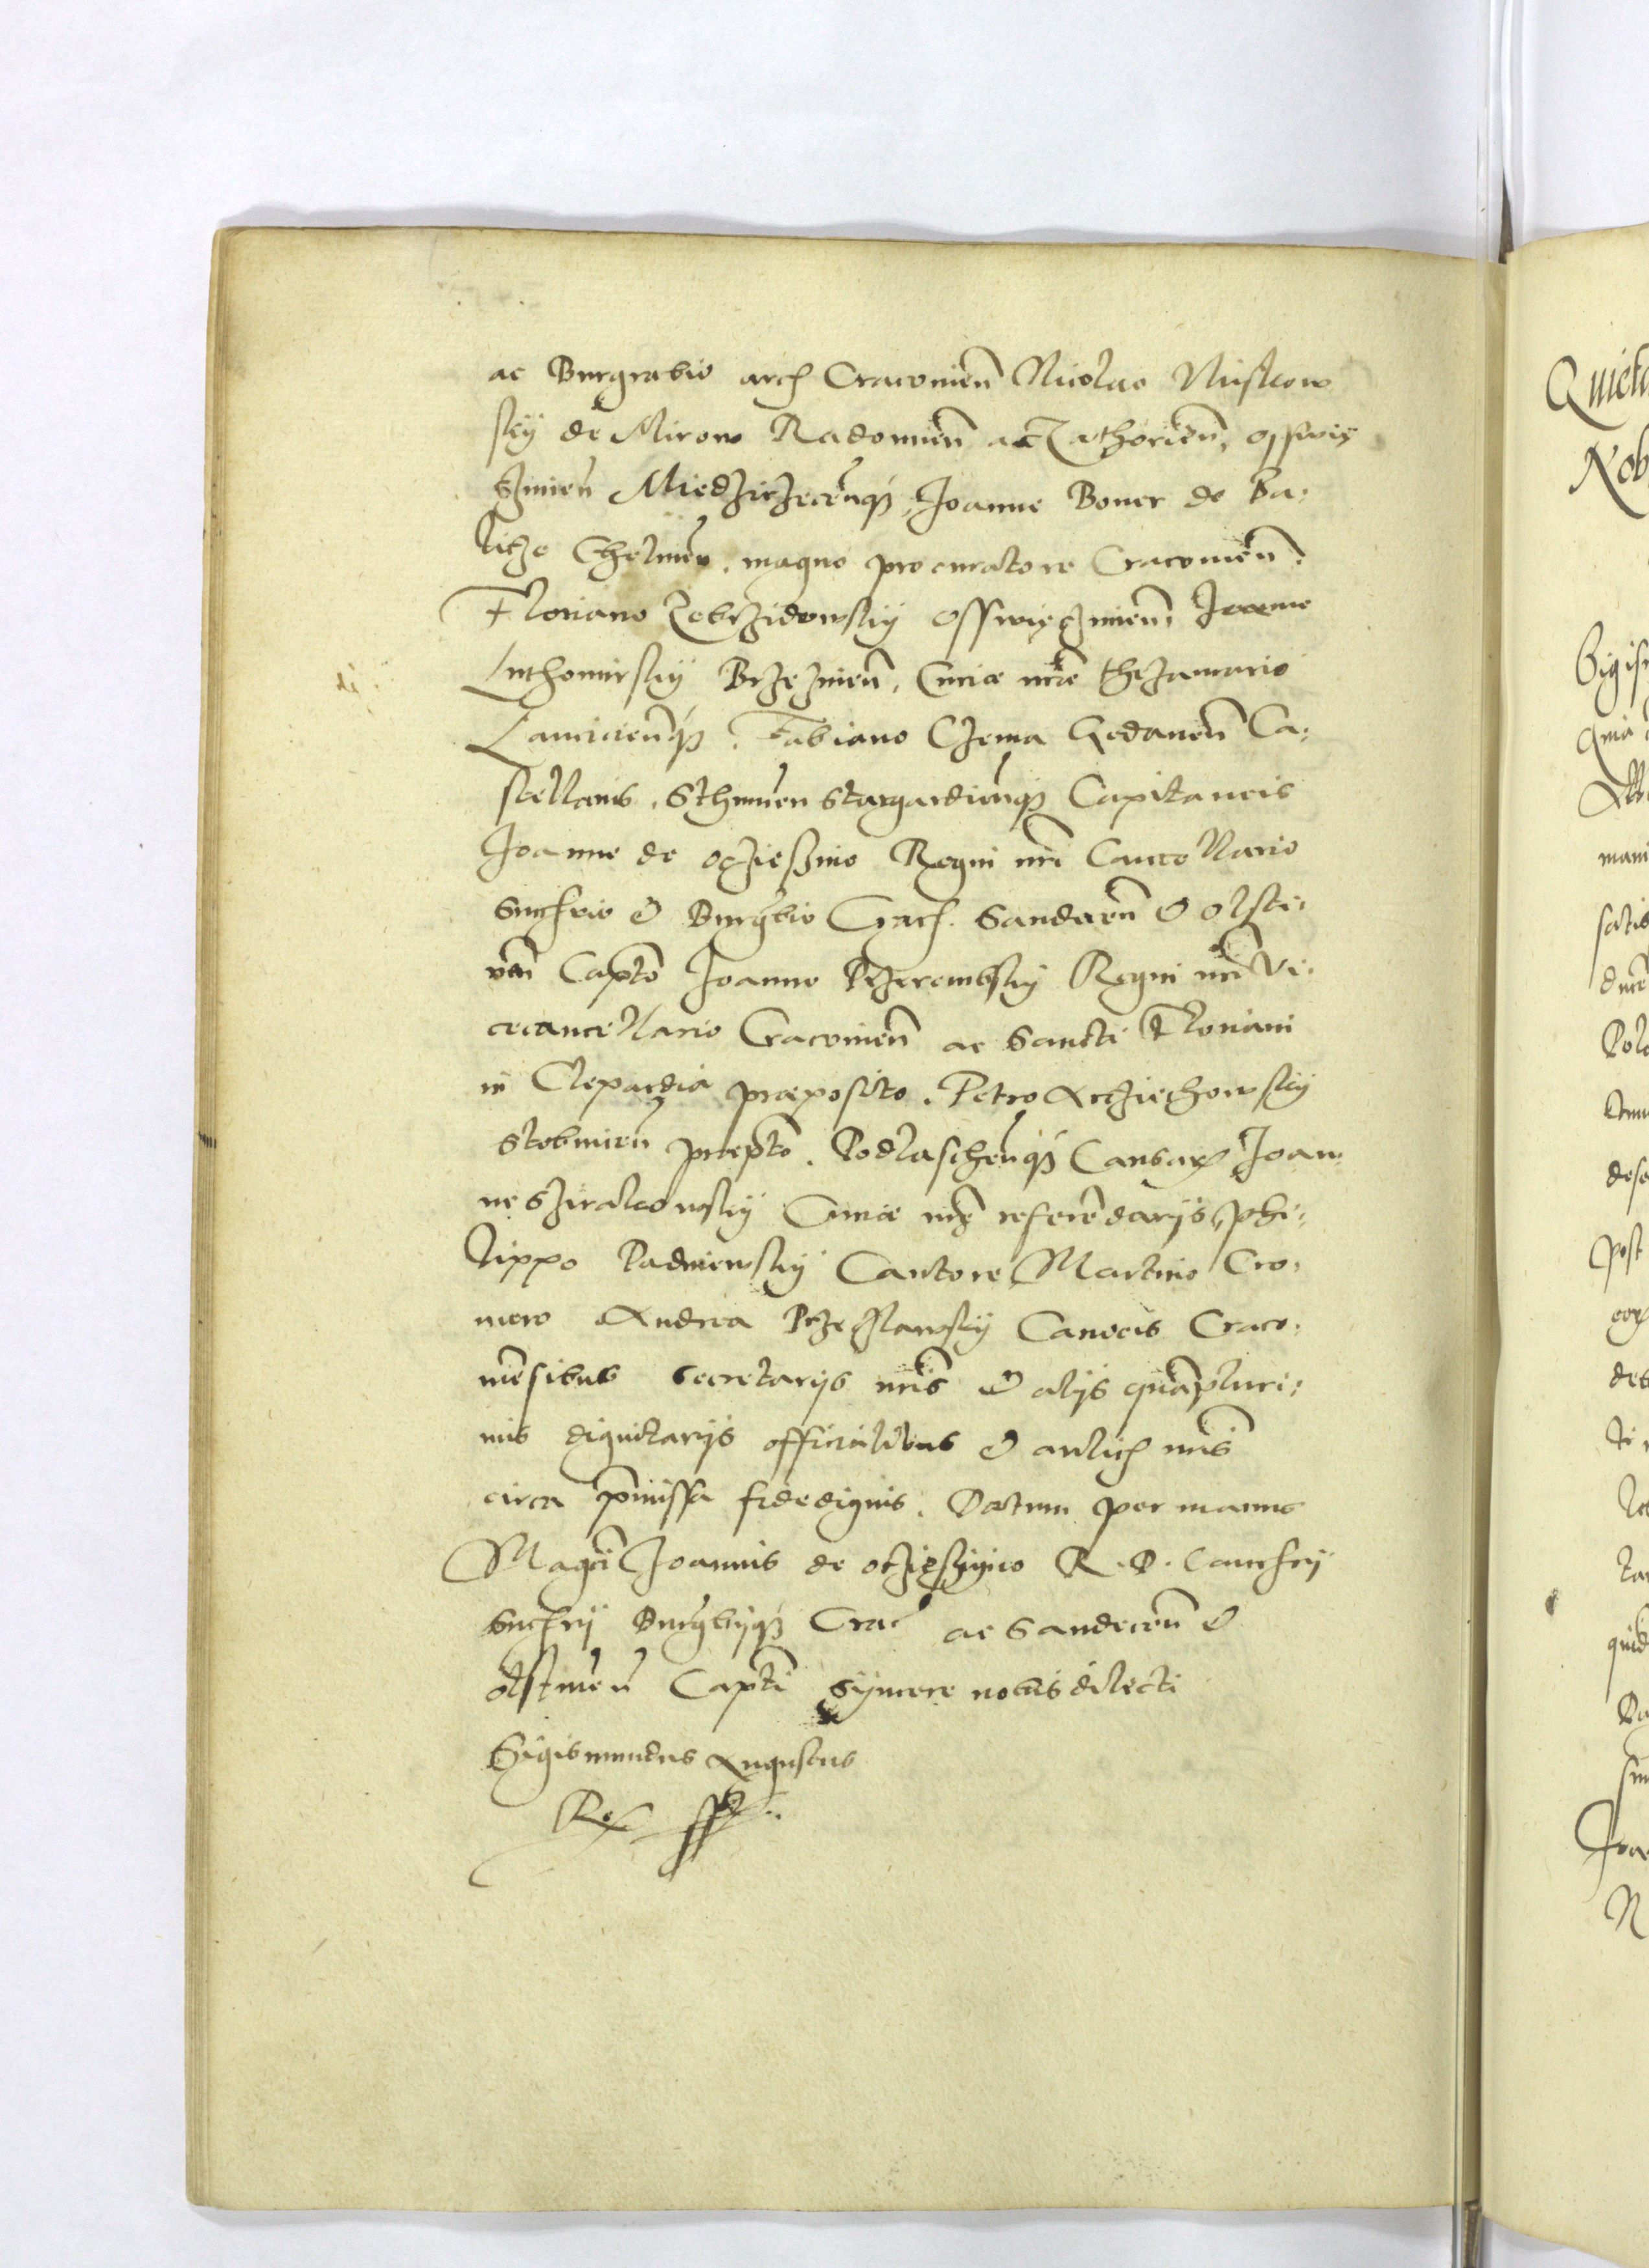 ac Burgrabio arcis Cracovien̄ Nicolao Miskow
sky de Mirow Radomien̄ ac Zathorien̄, Osswię
czimien̄ Miedzirzecen̄q₃, Joanne Boner de Ba:
litze Chelmen̄. magno procuratore Cracovien̄.
Floriano Zebrzidowsky Osswięczimien̄, Joanne
Luthomirsky Brzezinen̄, Curiæ nr̄æ thezaurario
Lancicien̄q₃. Fabiano Czema Gedanen̄ Ca:
stellanis, Sthumen̄ Stargardien̄q₃ Capitaneis
Joanne de Oczieszino Regni nr̄i Cancellario
Succ. & Burg̃bio Crac. Sandecen̄ & Olsti:
nen̄ Captō Joanne Przerembsky Regni nr̄i Vi:
cecancellario Cracovien̄ ac Sancti Floriani
in Clepardia præposito. Petro
præptō. Podlaschen̄q₃ Joan
ne Sziralkowsky Curiæ nr̄ę referēdarijs, Phi:
lippo Padniewsky Cantore, Martino Cro:
mero Andrea Przeczlawsky Canōcis Craco:
viēsibus Secretarijs nr̄is & alijs quāpluri:
mis dignitarijs officialibus & aulicis nr̄is
circa p̄missa fidedignis. Datum per manus
Magci Joannis de Oczieszyno R. P. Cancrij
Burg̃bijq₃ Crac ac Sandecen̄ &
Olstinen̄ Captī syncere nobis dilecti
Sigismundus Augustus
Rex
Quieta
Nob
Sigism
Quia
mani
satis
Polo
dese
post
eor
des
quid